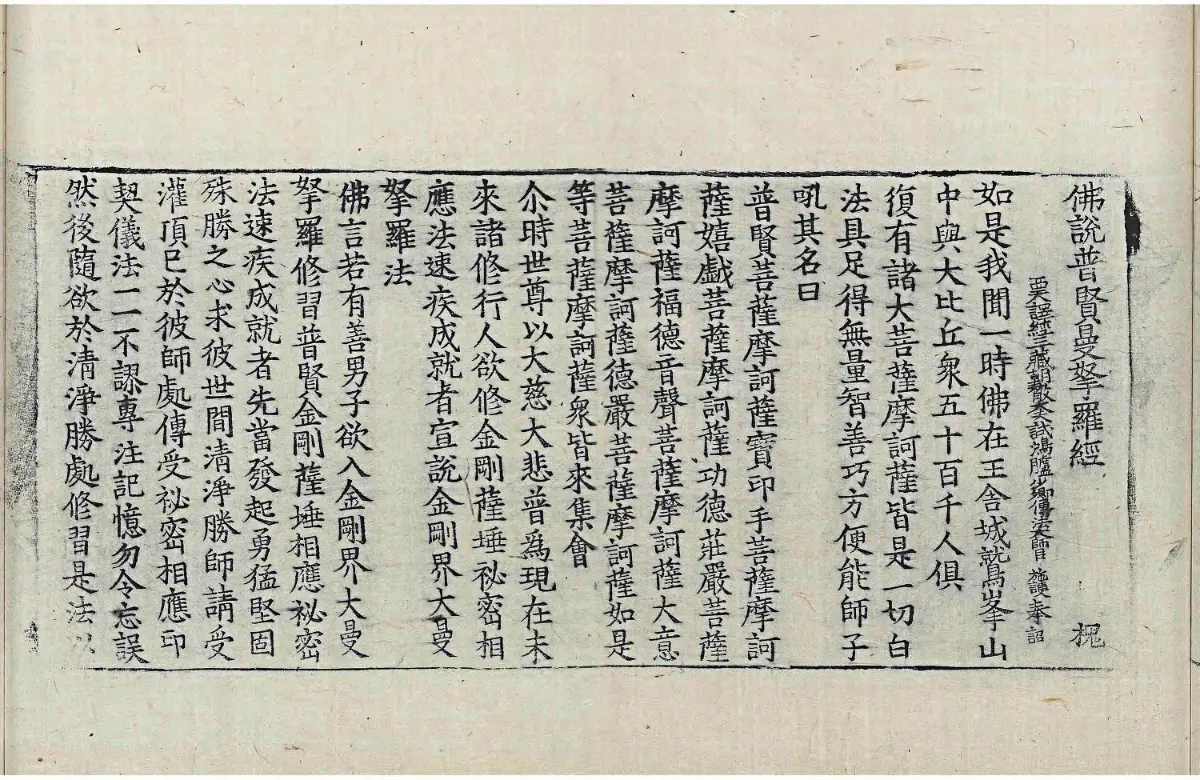 佛說普賢曼拏羅經 槐
譯經三藏朝散大夫試鴻臚少卿傳法大師 施護奉 詔
如是我聞一時佛在王舍城鷲峯山
中與大比丘衆五十百千人俱
復有諸大菩薩摩訶薩皆是一切白
法具足得無量智善巧方便能師子
吼其名曰
普賢菩薩摩訶薩寶印手菩薩摩訶
薩嬉戲菩薩摩訶薩功德莊嚴菩薩
摩訶薩福德音聲菩薩摩訶薩大意
菩薩摩訶薩德嚴菩薩摩訶薩如是
等菩薩摩訶薩衆皆來集會
尒時世尊以大慈大悲普爲現在未
來諸修行人欲修金剛薩埵祕密相
應法速疾成就者宣說金剛界大曼
拏羅法
佛言若有善男子欲入金剛界大曼
拏羅修習普賢金剛薩埵相應祕密
法速疾成就者先當發起勇猛堅固
殊勝之心求彼世間清淨勝師請受
灌頂已於彼師處傳受祕密相應印
契儀法一一不謬專注記憶勿令忘誤
然後隨欲於清淨勝處修習是法以